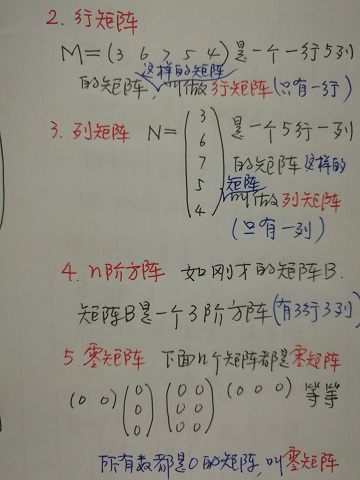 2. 行矩阵
M=(3 6 7 5 4) 是一个一行5列
的矩阵,这样的矩阵叫做行矩阵(只有一行)
3. 列矩阵 N=(3 6 7 5 4) 是一个5行一列
的矩阵这样的
矩阵叫做列矩阵
(只有一列)
4. n阶方阵 如刚才的矩阵B.
矩阵B是一个3阶方阵(有3行3列)
5 零矩阵 下面几个矩阵都是零矩阵
(0 0) (0 0 0) (0 0 0 0 0 0) (0 0 0) 等等
所有数都是0的矩阵,叫零矩阵